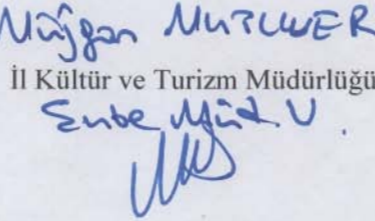 Müjgan MUTLUER
İl Kültür ve Turizm Müdürlüğü
Şube Müd. V.